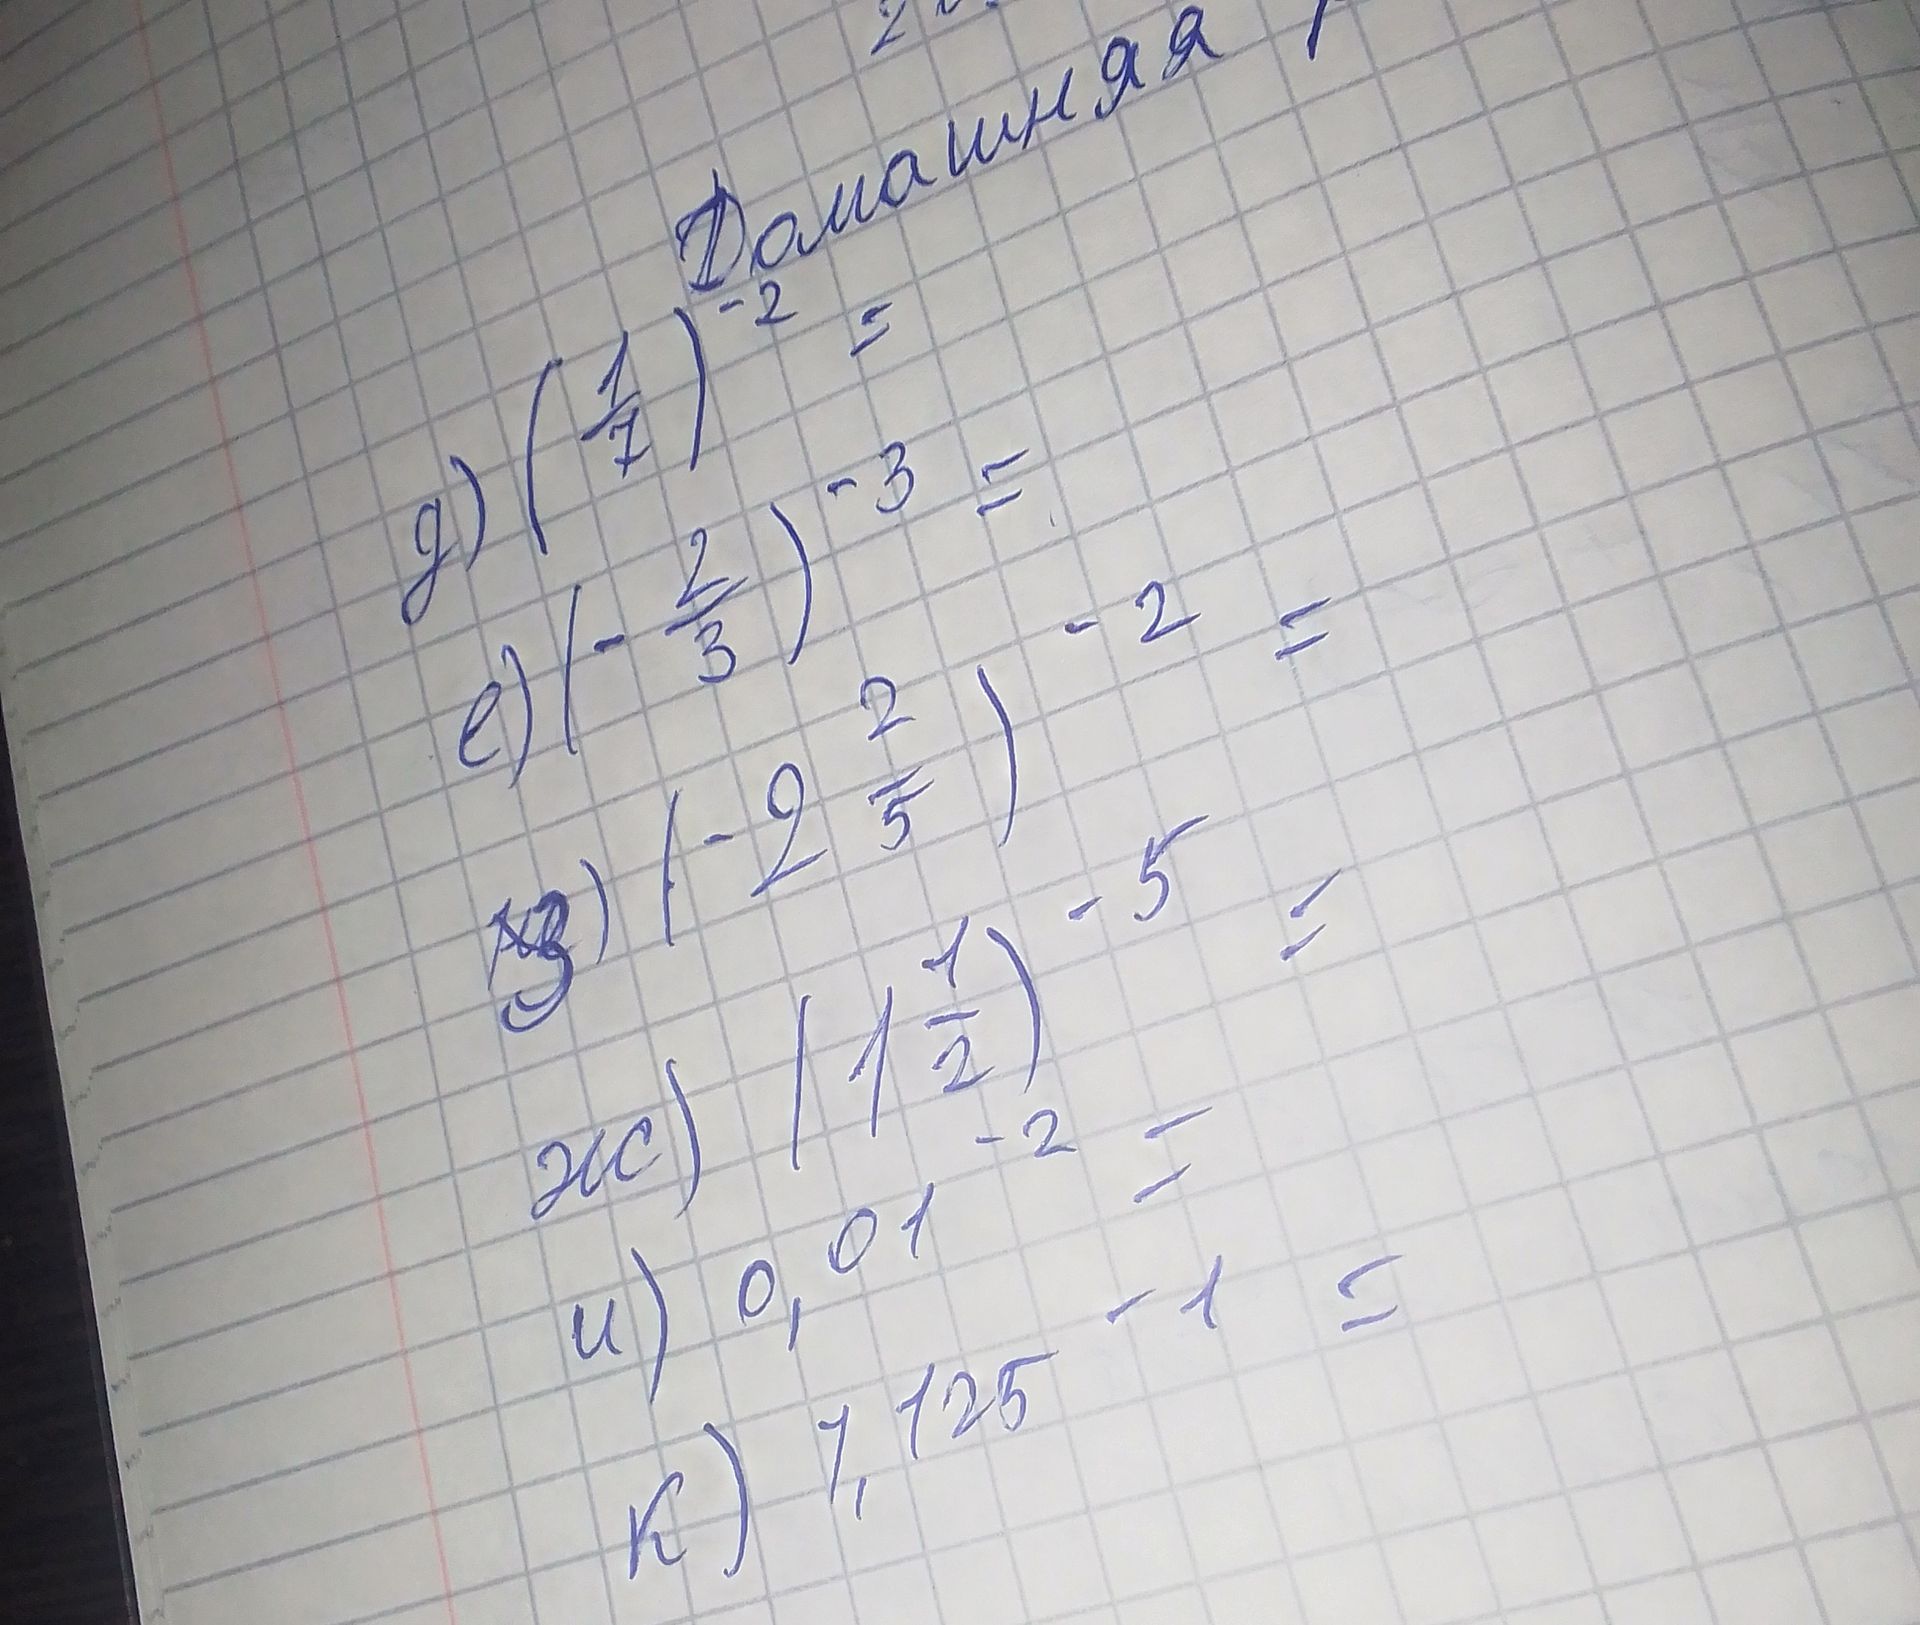 Домашняя
д) (1/7)^-2 =
е) (- 2/3)^-3 =
з) (-2 2/5)^-2 =
ж) (1 1/2)^-5 =
и) 0,01^-2 =
к) 1,125^-1 =